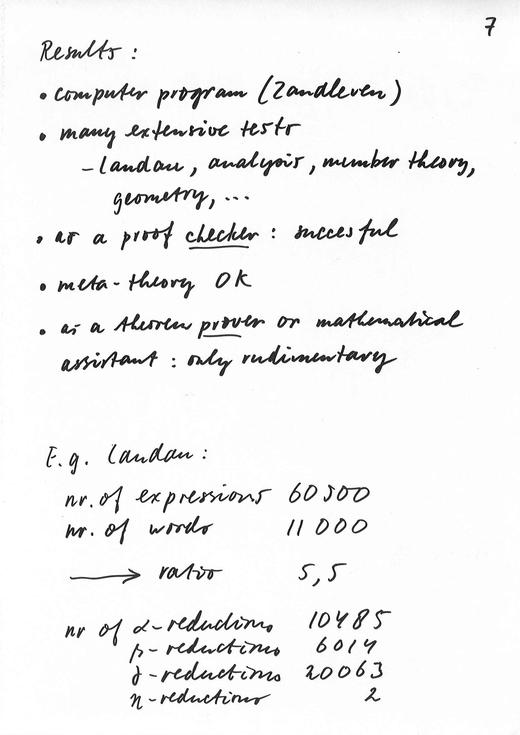 7
Results :
• computer program (Zandleven)
• many extensive tests
– Landau, analysis, number theory,
geometry, ...
• as a proof checker : succesful
• meta-theory OK
• as a theorem prover or mathematical
assistant : only rudimentary
E.g. Landau :
nr. of expressions 60500
nr. of words 11 000
⟶ ratio 5,5
nr of α-reductions 10485
β-reductions 6014
δ-reductions 20063
η-reductions 2